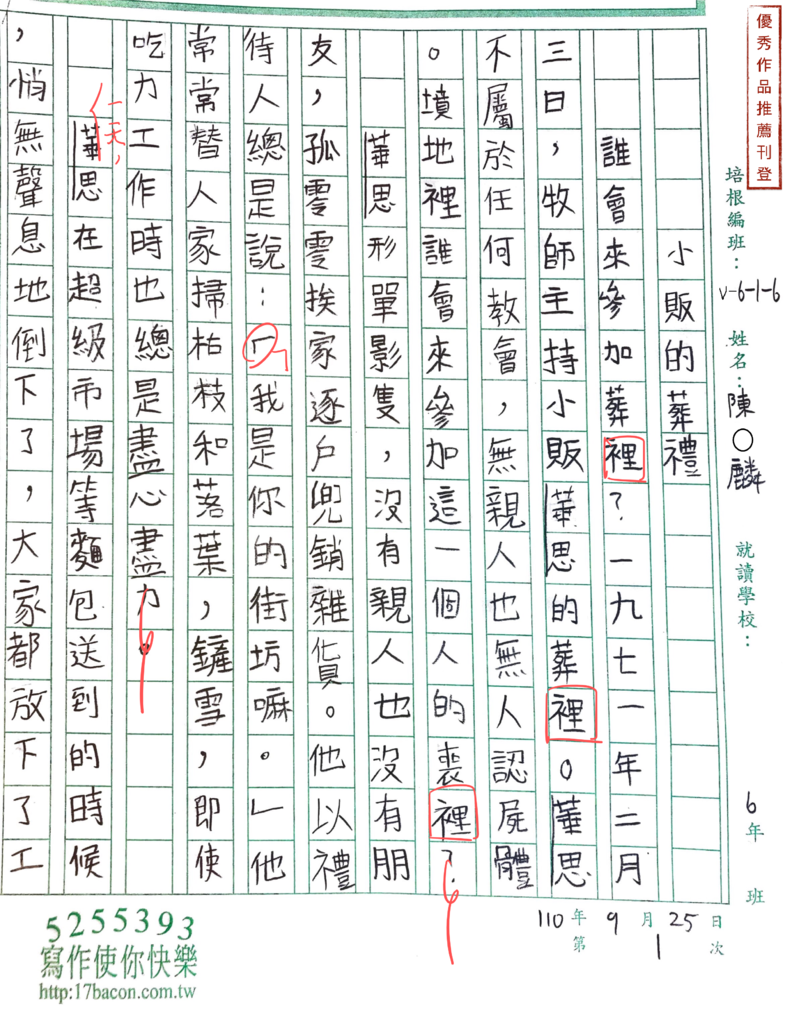 優秀作品推薦刊登
培根編班：V-6-1-6 姓名：陳○麟 就讀學校： 6年 班
小販的葬禮
誰會來參加葬裡？一九七一年二月
三日，牧師主持小販華思的葬裡。華思
不屬於任何教會，無親人也無人認屍體
。墳地裡誰會來參加這一個人的喪裡？
華思形單影隻，沒有親人也沒有朋
友，孤零零挨家逐戶兜銷雜貨。他以禮
待人總是說：「我是你的街坊嘛。」他
常常替人家掃枯枝和落葉，鏟雪，即使
吃力工作時也總是盡心盡力。
一天，
華思在超級市場等麵包送到的時候
，悄無聲息地倒下了，大家都放下了工
110年9月25日
第1次
5255393
寫作使你快樂
http:17bacon.com.tw